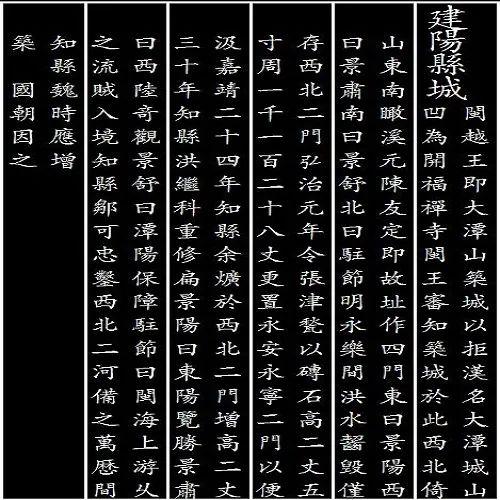 建陽縣城
閩越王即大潭山築城以拒漢名大潭城山
凹為開福禪寺閩王審知築城於此西北倚
山東南瞰溪元陳友定即故址作四門東曰景陽西
曰景肅南曰景舒北曰駐節明永樂間洪水齧毀僅
存西北二門弘治元年令張津甃以磚石高二丈五
寸周一千一百二十八丈更置永安永寧二門以便
汲嘉靖二十四年知縣余爌於西北二門增高二丈
三十年知縣洪繼科重修扁景陽曰東陽覽勝景肅
曰西陸奇觀景舒曰潭陽保障駐節曰閩海上游乆
之流賊入境知縣鄒可忠鑿西北二河備之萬厯間
知縣魏時應增
築 國朝因之